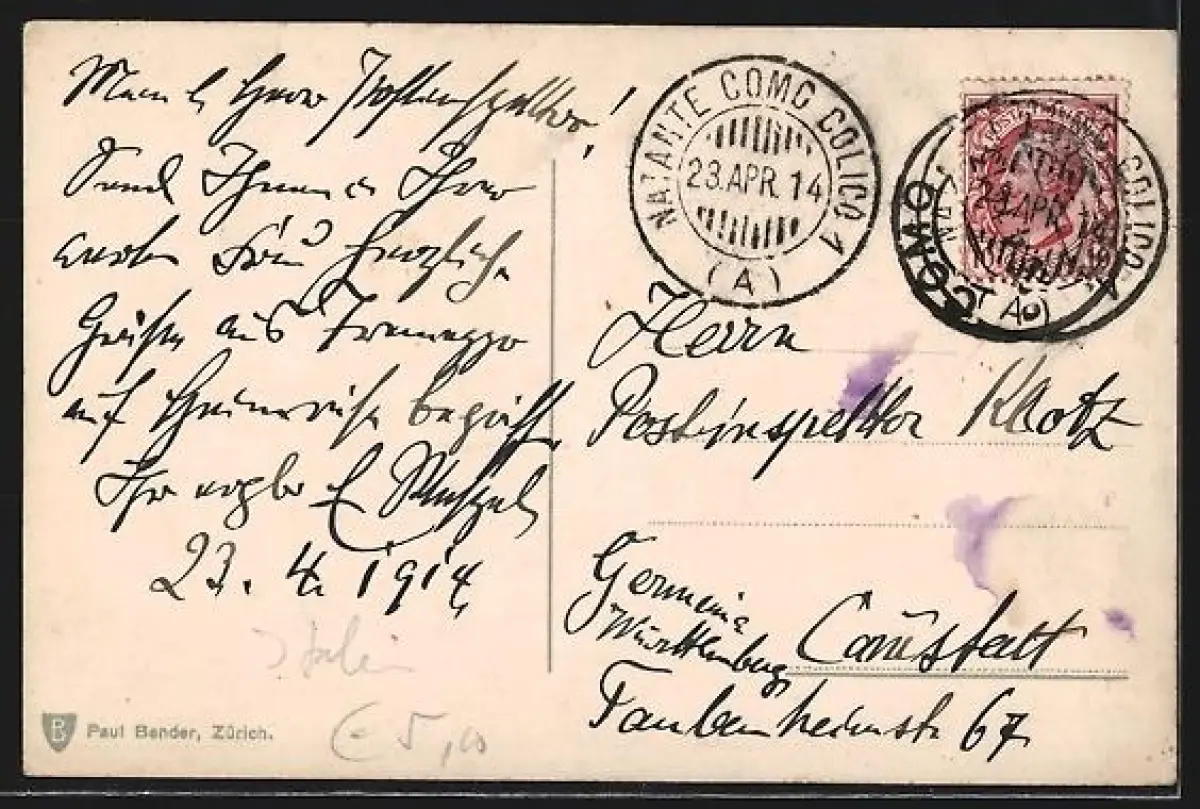 Herr Postinspektor!
Send Ihnen u Ihrer
werten Frau herzlich.
Grüße aus Tremezzo
auf Heimreise begriffen
Ihr ergbr
23. 4. 1914
Italien
€ 5,00
Paul Bender, Zürich.
NATANTE COMO COLICO 1
23.APR.14
(A)
COMO
COLICO
23.APR.14
(A)
Herrn
Postinspektor Klotz
Germania
Württemberg
Cannstatt
Taubenheimstr 67